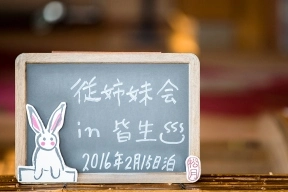 従姉妹会
in 皆生♨
2016年2月15日泊
松月